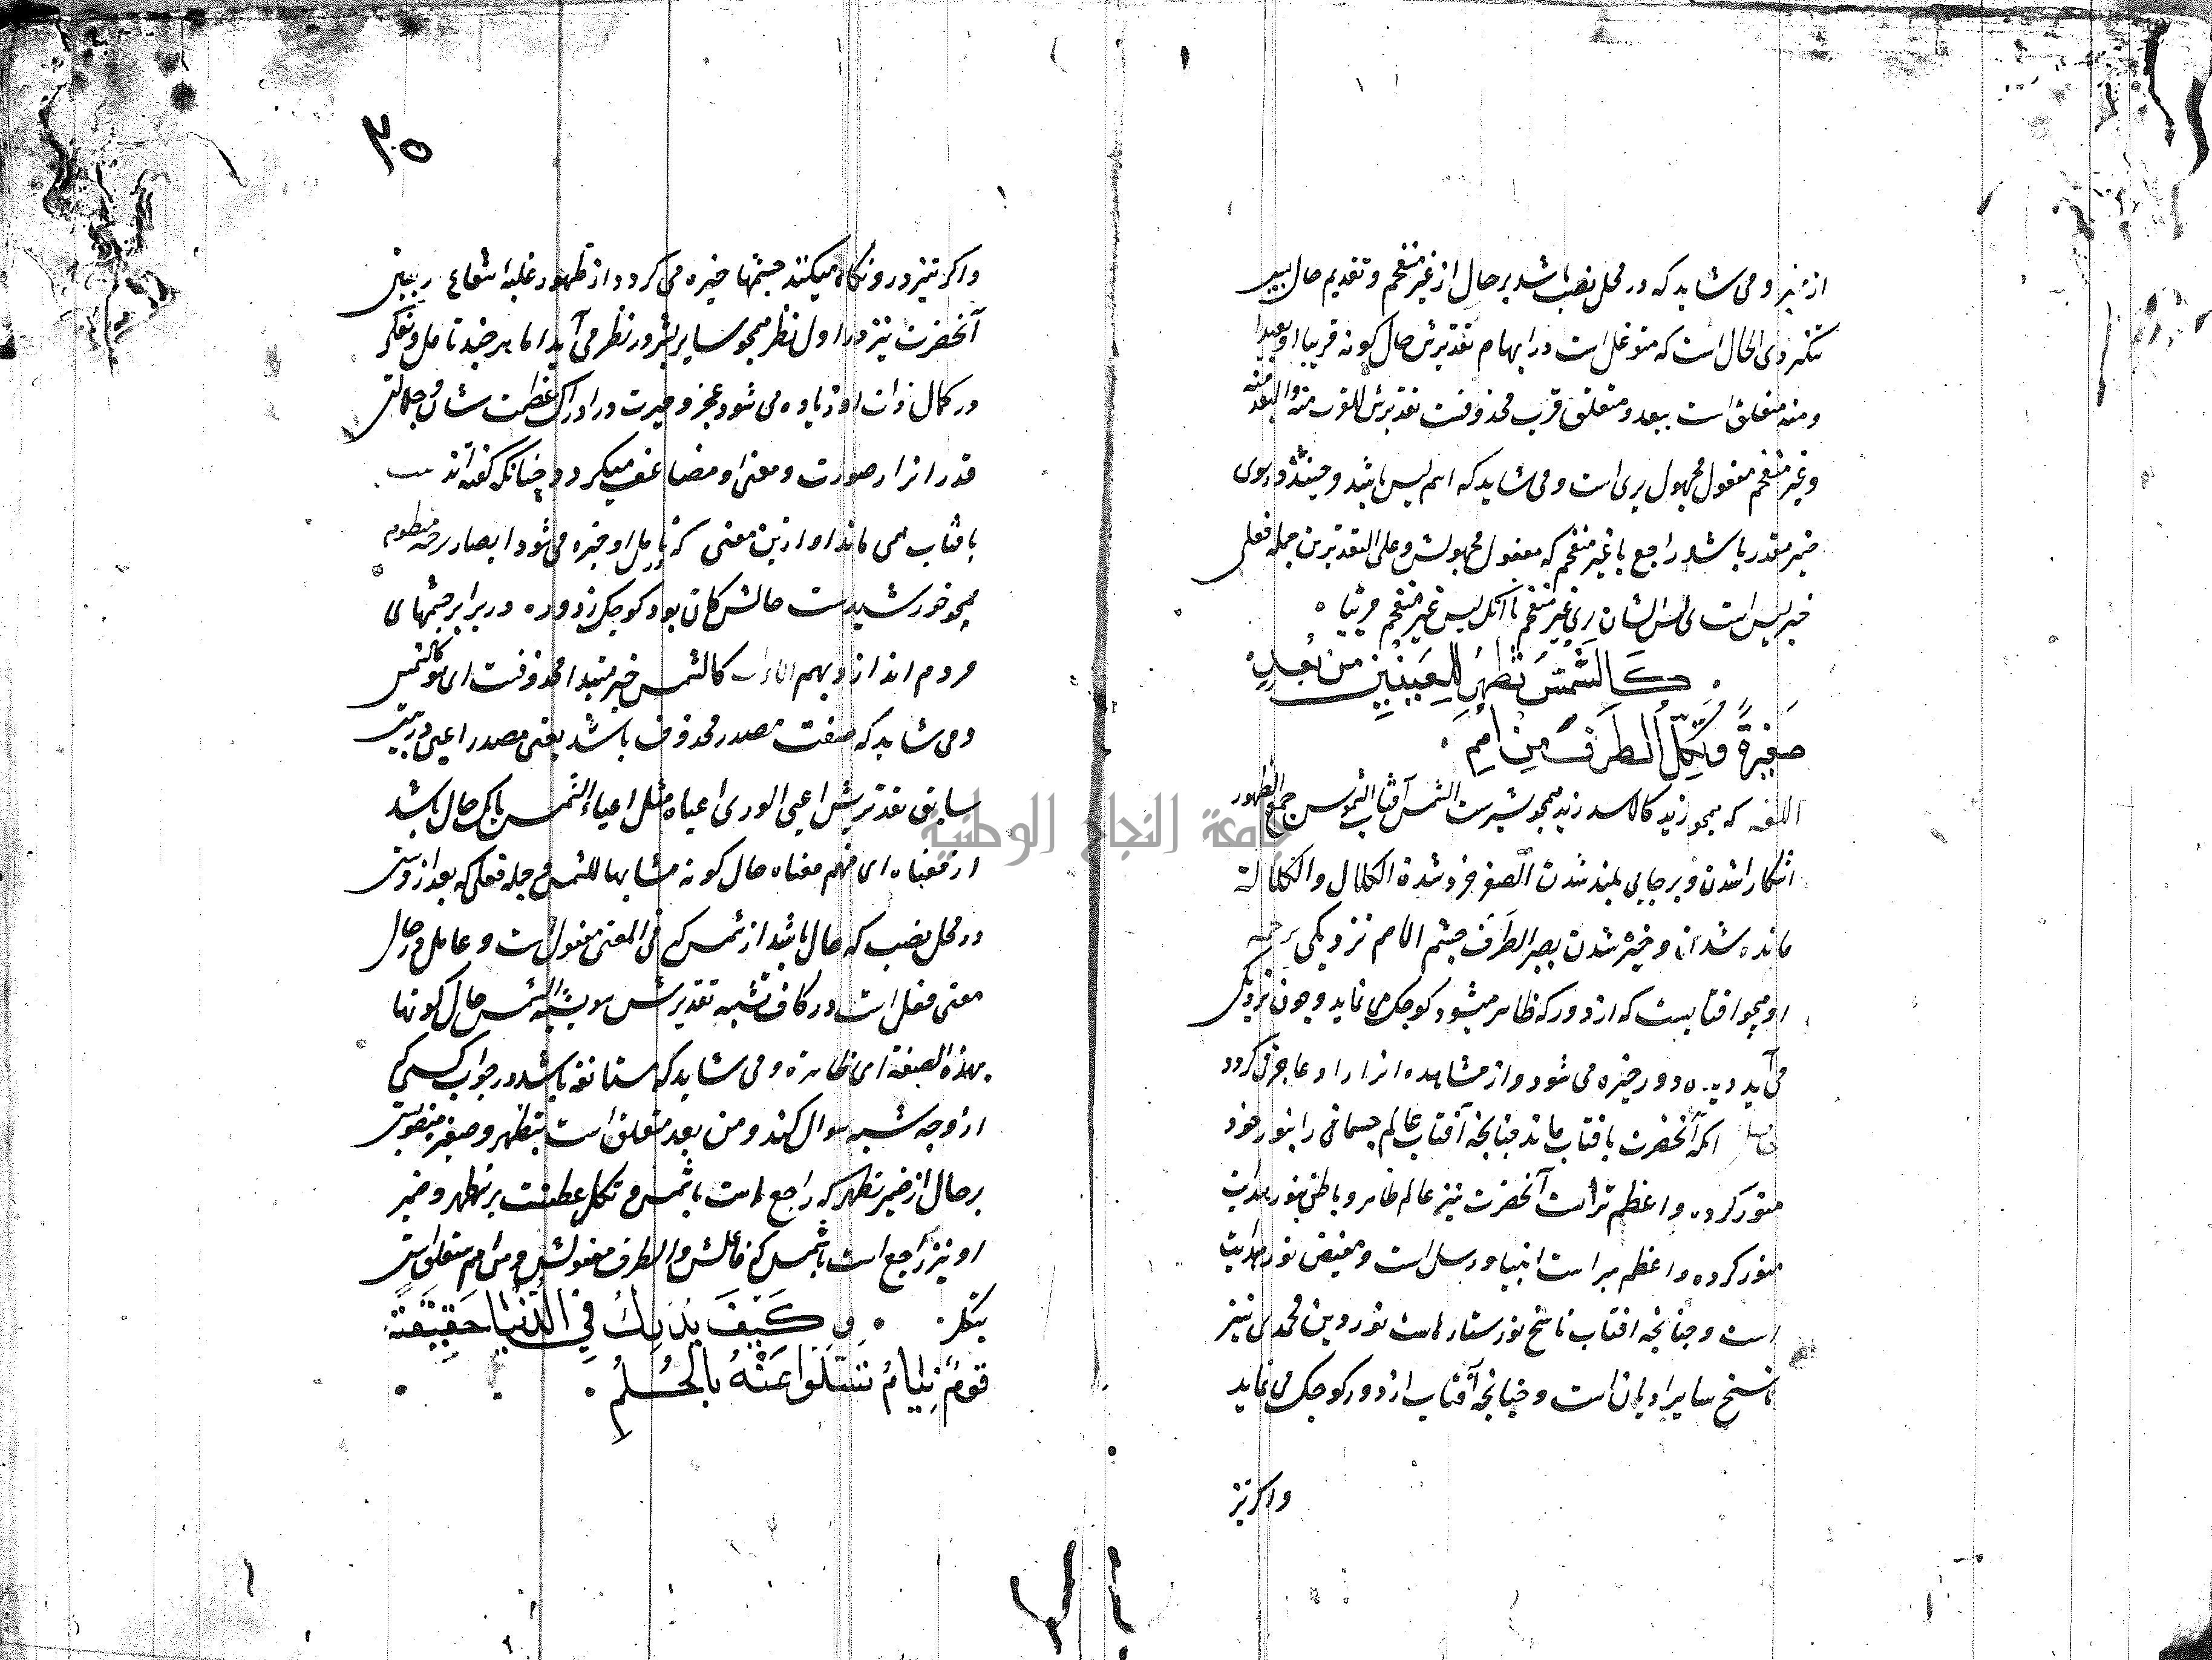 و می شاید که در محل نصب باشد بر حال از غیر منفحم و تقدیم حال
ذی الحال است که متوغل است در ابهام تقدیرش حال کونه قریبا او بعیدا
و منه متعلق است ببعد و متعلق قرب محذوفست تقدیرش للقرب منه والبعد منه
و غیر منفحم مفعول مجهول یری است و می شاید که اسم لیس باشد و حینئذ در یری
ضمیر مقدر باشد راجع با غیر منفحم که مفعول مجهولش و علی التقدیرین جمله فعلی
خبر لیس است ای لیس الشان ری غیر منفحم یا آنکه لیس غیر منفحم مرئیا
كَالشَّمْسِ تَظْهَرُ لِلْعَيْنَيْنِ مِنْ بُعُدٍ
صَغِيرَةً وَتُكِلُّ الطَّرْفَ مِنْ أَمَمِ
اللغه که همچو زید کالاسد زید همچو شیرست الشمس آفتاب الشموس جمع الظهور
اشکارا شدن و بر جایی بلند شدن الصغر خرد شدن الکلال والکلالة
مانده شدن و خیره شدن بصر الطرف چشم الامم نزدیکی ترجمه
او همچو افتابیست که از دور که ظاهر میشود کوچک می نماید و چون نزدیک
می آید دیده در خیره می شود و از مشاهده انرا او عاجز می کردد
انکه آنحضرت بافتاب ماند چنانچه آفتاب عالم جسمانی را بنور خود
منور کرده و اعظم است آنحضرت نیز عالم ظاهر و باطن بنور هدایت
منور کرده و اعظم است انبیا و رسل است و مفیض نور هدایت
است و چنانچه افتاب ناسخ نور ستارهاست نور دین محمدی نیز
ناسخ سایر ادیان است و چنانچه آفتاب از دور کوچک می نماید
واکر تیز
٣٠
واکر تیز در و نکاه میکنند چشمها خیره می کردد از ظهور غلبه شعاع
آنحضرت نیز در اول نظر همچو سایر بشر در نظر می آید اما هر چند تامل و تفکر
در کمال ذات او زیاده می شود عجز و حیرت در ادراک عظمت شان و جلالت
قدر انرا صورت و معنی او مضاعف میکردد چنانکه گفته اند
بافتاب می ماند او ازین معنی که تامل او خیره می شود ابصار ترجمه منظوم
همچو خورشیدست حالش کان بود کوچک ز دور در برابر چشمهای
مردم اندازد بهم کالشمس خبر مبتدا محذوفست ای هو کالشمس
و می شاید که صفت مصدر محذوف باشد یعنی مصدر اعیی در بیت
سابق تقدیرش اعیی الوری اعیاء مثل اعیاء الشمس یا آنکه حال باشد
از معناه ای فهم معناه حال کونه مشابها للشمس و جمله فعلی که بعد ازوست
در محل نصب که حال باشد از شمس که فی المعنی مفعول است و عامل در حال
معنی فعل است در کاف تشبیه تقدیرش یشبه الشمس حال کونها
بهذه الصفة ای ظاهرة و می شاید که مستانفه باشد در جواب کسی که
از وجه شبه سوال کند و من بعد متعلق است بتظهر و صغیره منصوبست
بر حال از ضمیر تظهر که راجع است باشمس و تکل عطفست بر تظهر و ضمیر
او نیز راجع است باشمس که فاعلش و الطرف مفعولش و من امم متعلق است
بتکل وَكَيْفَ يُدْرِكُ فِي الدُّنْيَا حَقِيقَتَهُ
قَوْمٌ نِيَامٌ تَسَلَّوْا عَنْهُ بِالْحُلُمِ